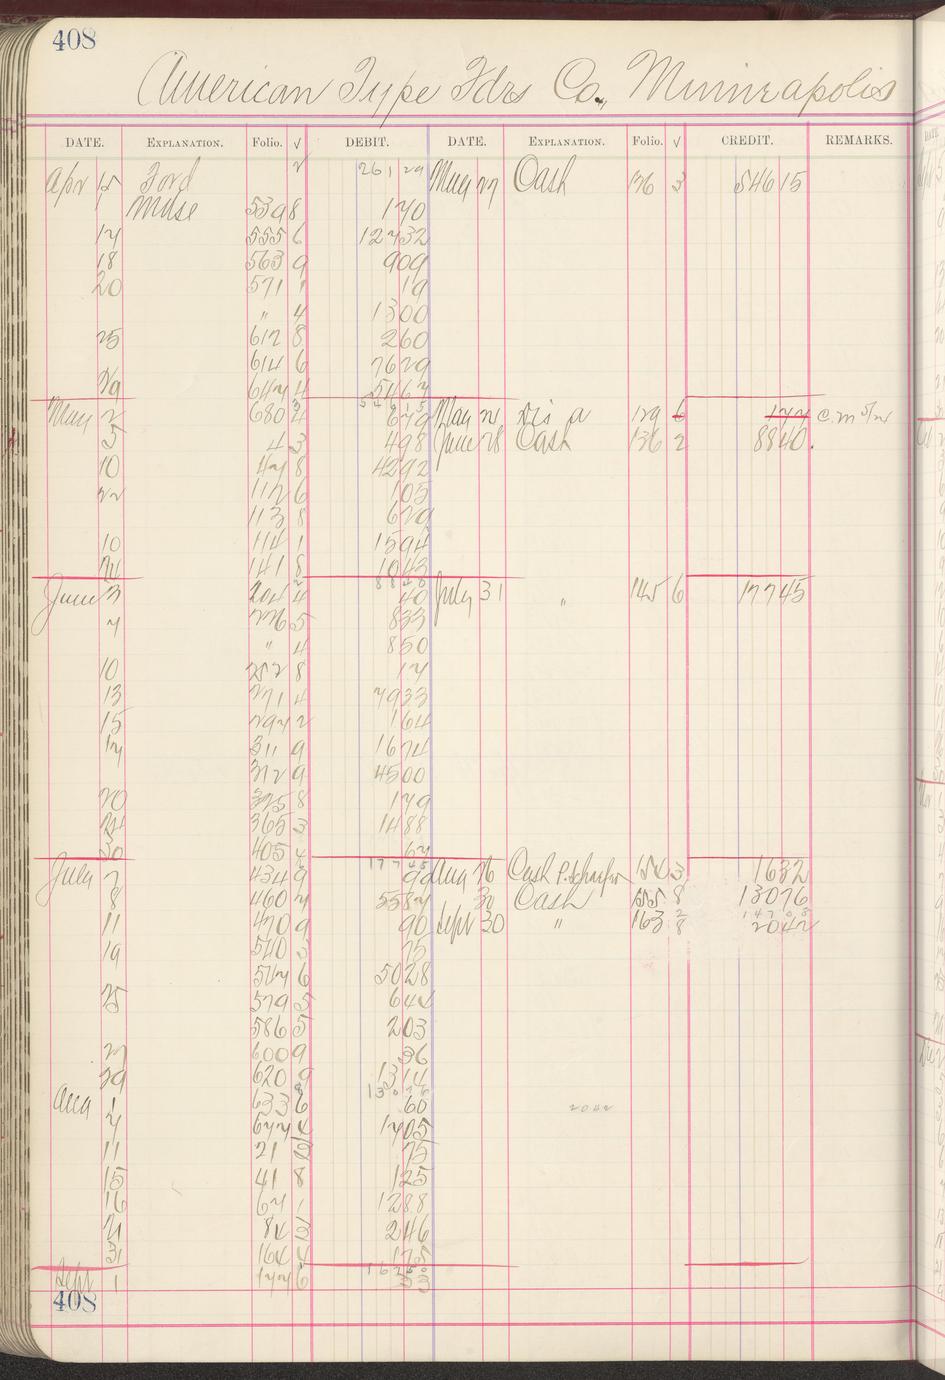 408
American Type Fdrs Co., Minneapolis
DATE. EXPLANATION. Folio. √ DEBIT. DATE. EXPLANATION. Folio. √ CREDIT. REMARKS.
Apr 15 Ford √ 261 29 May 27 Cash 136 3 546 15
1 Mdse 539 8 1 70
14 555 6 124 32
18 563 9 9 09
20 571 1 19
" 4 13 00
25 612 8 2 60
614 6 76 29
29 644 4 54 67
546 15
May 2 680 4 6 79 May 21 129 6 1 44 C.M 5/21
5 4 3 4 98 June 28 Cash 136 2 88 40
10 47 8 42 92
22 112 6 1 05
113 8 6 29
10 114 1 15 94
24 141 8 10 43
88 40
June 3 4 40 July 31 " 145 6 177 45
7 226 5 8 33
" 4 8 50
10 252 8 17
13 271 4 79 33
15 294 2 1 64
17 311 9 16 74
312 9 45 00
20 325 8 1 79
24 365 3 14 88
30 405 4 67
177 45
July 7 434 9 90 Aug 26 Cash 154 3 16 32
8 460 7 55 87 30 Cash 155 8 130 76
147 08
11 470 9 90 Sept 30 " 163 8 20 42
19 540 3 75
547 6 50 28
25 579 5 6 42
586 5 2 03
27 600 9 36
29 620 9 13 14
130 76
Aug 1 633 6 60 20 42
4 644 4 14 05
11 21 2 75
15 41 8 1 25
16 67 1 12 88
21 84 2 2 46
31 164 4 1 75
Sept 1 177 6
408